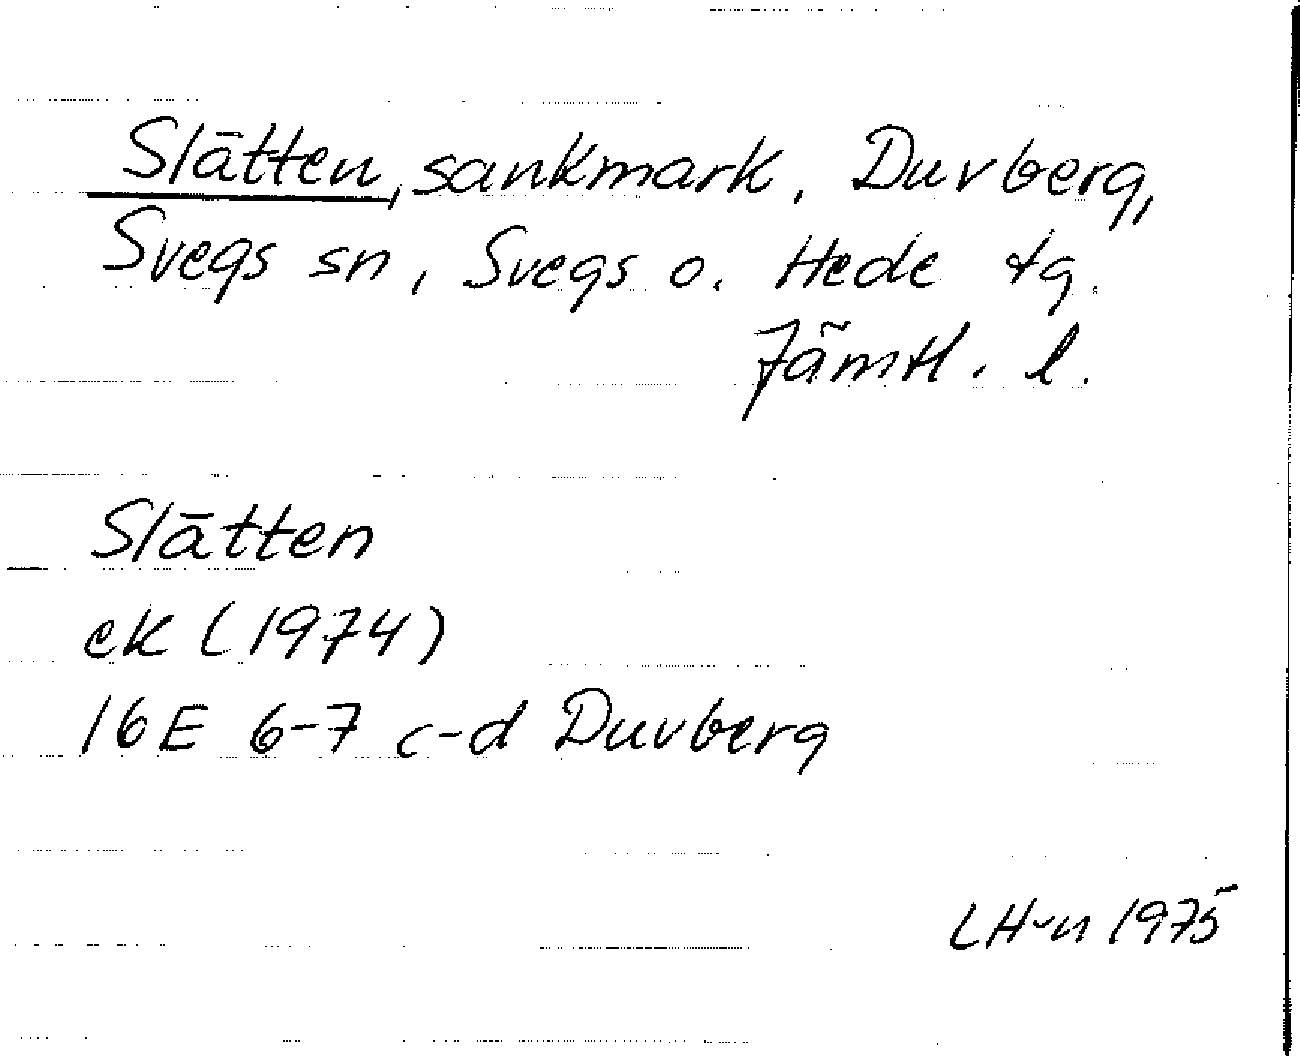 Slätten, sankmark, Duvberg,
Svegs sn, Svegs o. Hede tg.
Jämtl. l.
Slätten
ek (1974)
16E 6-7 c-d Duvberg
LH-n 1975